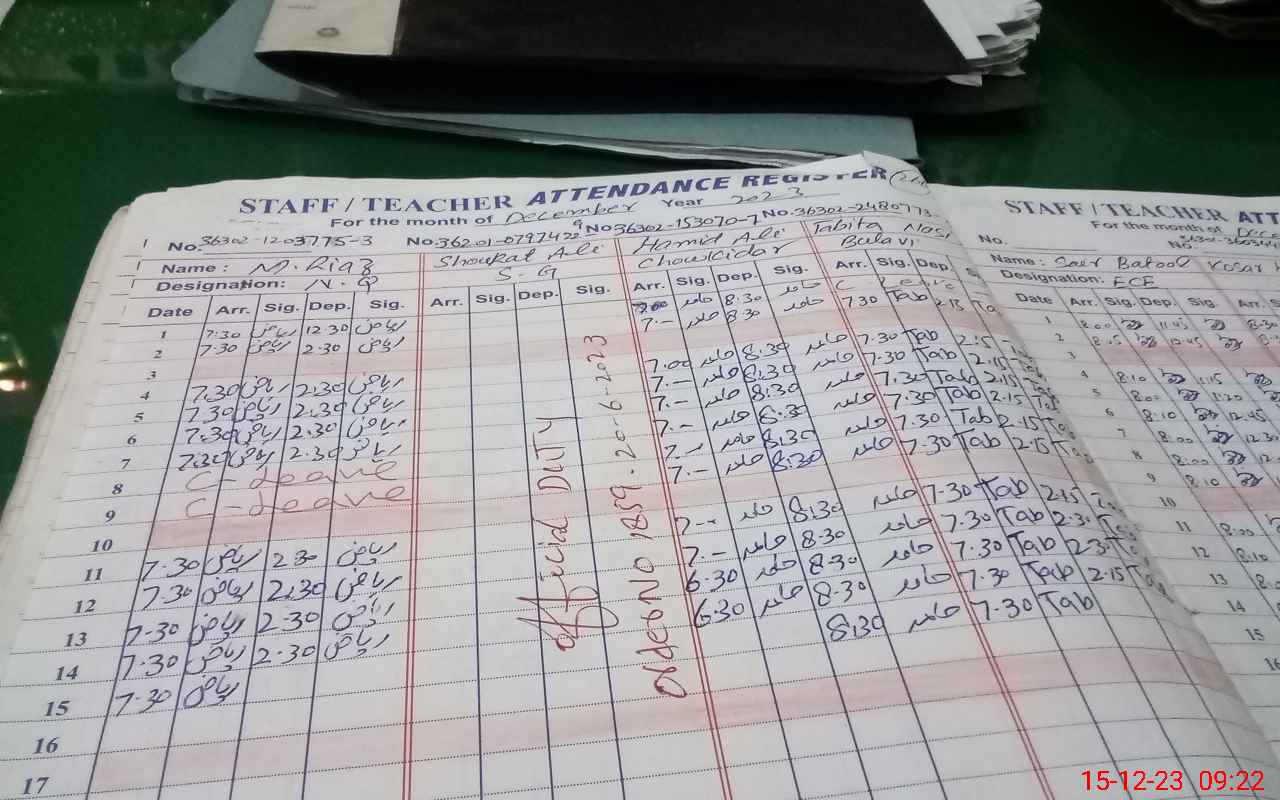 STAFF / TEACHER ATTENDANCE REGISTER
For the month of December Year 2023
No. 36302-1203775-3 No. 36201-0797422-9 No 36302-153070-7 No. 36302-2480773-
Name : M. Riaz Shoukat Ali Hamid Ali Tabita
Designation: N.Q S.G Chowkidar
Date Arr. Sig. Dep. Sig. Arr. Sig. Dep. Sig. Arr. Sig. Dep. Sig. Arr. Sig. Dep.
1 7:30 ریاض 12.30 ریاض 7.00 حامد 8:30 حامد C. Leave
2 7:30 ریاض 2.30 ریاض 7.- حامد 8:30 حامد 7.30 Tab 2.15
3
4 7.30 ریاض 2.30 ریاض 7.00 حامد 8.30 حامد 7.30 Tab 2.15
5 7.30 ریاض 2.30 ریاض 7.- حامد 8.30 حامد 7.30 Tab 2.15
6 7.30 ریاض 2.30 ریاض 7.- حامد 8.30 حامد 7.30 Tab 2.15
7 7.30 ریاض 2.30 ریاض 7.- حامد 8.30 حامد 7.30 Tab 2.15
8 C-Leave 7.- حامد 8.30 حامد 7.30 Tab 2.15
9 C-Leave 7.- حامد 8.30 حامد 7.30 Tab 2.15
10
11 7.30 ریاض 2.30 ریاض 7.- حامد 8.30 حامد 7.30 Tab 2.15
12 7.30 ریاض 2.30 ریاض 7.- حامد 8.30 حامد 7.30 Tab 2.30
13 7.30 ریاض 2.30 ریاض 6.30 حامد 8.30 حامد 7.30 Tab 2.30
14 7.30 ریاض 2.30 ریاض 6.30 حامد 8.30 حامد 7.30 Tab 2.15
15 7.30 ریاض 8.30 حامد 7.30 Tab
16
17
DUTY
1859-20-6-2023
STAFF / TEACHER ATT
For the month of
No.
Name : Batool
Designation: ECE
Date Arr. Sig. Dep. Sig. Arr.
1 8.00 11.45
2 8.15 10.45
3
4 8.10 1.15
5 8.00 1.20
6 8.10 12.45
7 8.00
8 8.00
9 8.10
10
11 8.00
12 8.10
13
14
15
16
15-12-23 09:22